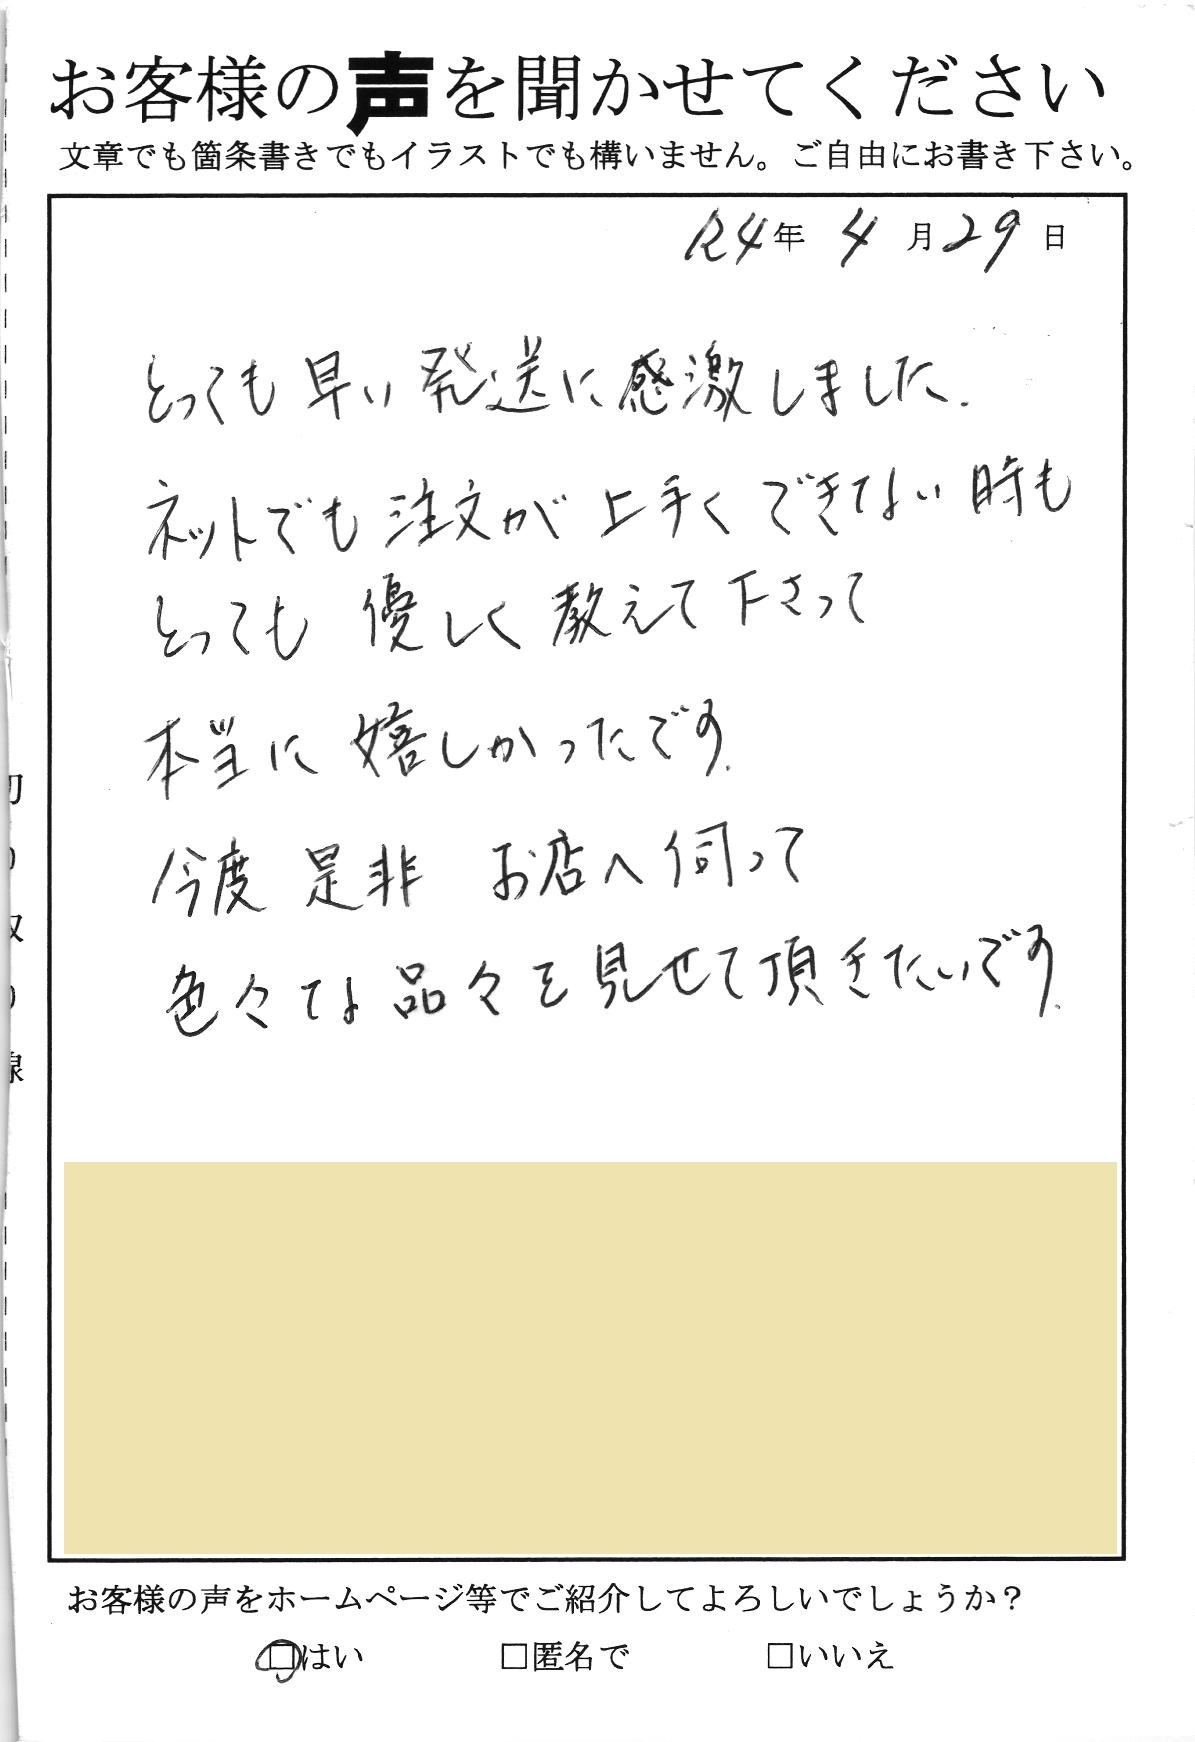 お客様の声を聞かせてください
文章でも箇条書きでもイラストでも構いません。ご自由にお書き下さい。
R4年 4月29日
とっても早い発送に感激しました.
ネットでも注文が上手くできない時も
とっても 優しく 教えて下さって
本当に 嬉しかったです.
今度 是非 お店へ伺って
色々な 品々を見せて頂きたいです.
お客様の声をホームページ等でご紹介してよろしいでしょうか？
□はい □匿名で □いいえ